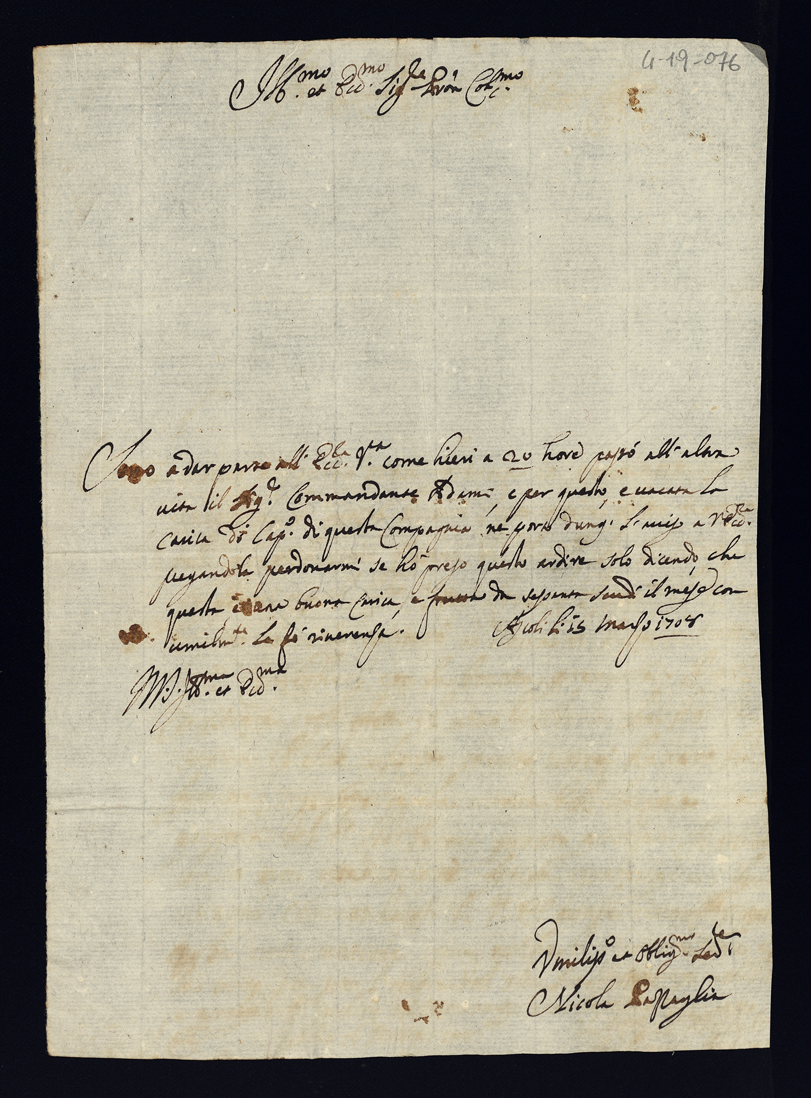 4-19-076
Ill.mo et Ecc.mo Sig.re P'ron Col.mo
Sono a dar parte all' Ecc.la V.ra come hieri a 20 hore passò all' altra
vita il Sig.r Commandante Adami, e per questo, e vacata la
carica di Cap.o di questa Compagnia, ne porto dunq. l'aviso a V. Ecc.za
pregandola perdonarmi se hò preso questo ardire solo dicendo, che
questa è una buona carica, e frutta da sessanta scudi il mese con
umilm.te le fò riverenza. Ascoli li 15 Marzo 1708
V.S. Ill.ma et Ecc.ma
Umiliss.o et Oblig.mo Ser.re
Nicola Papaglia